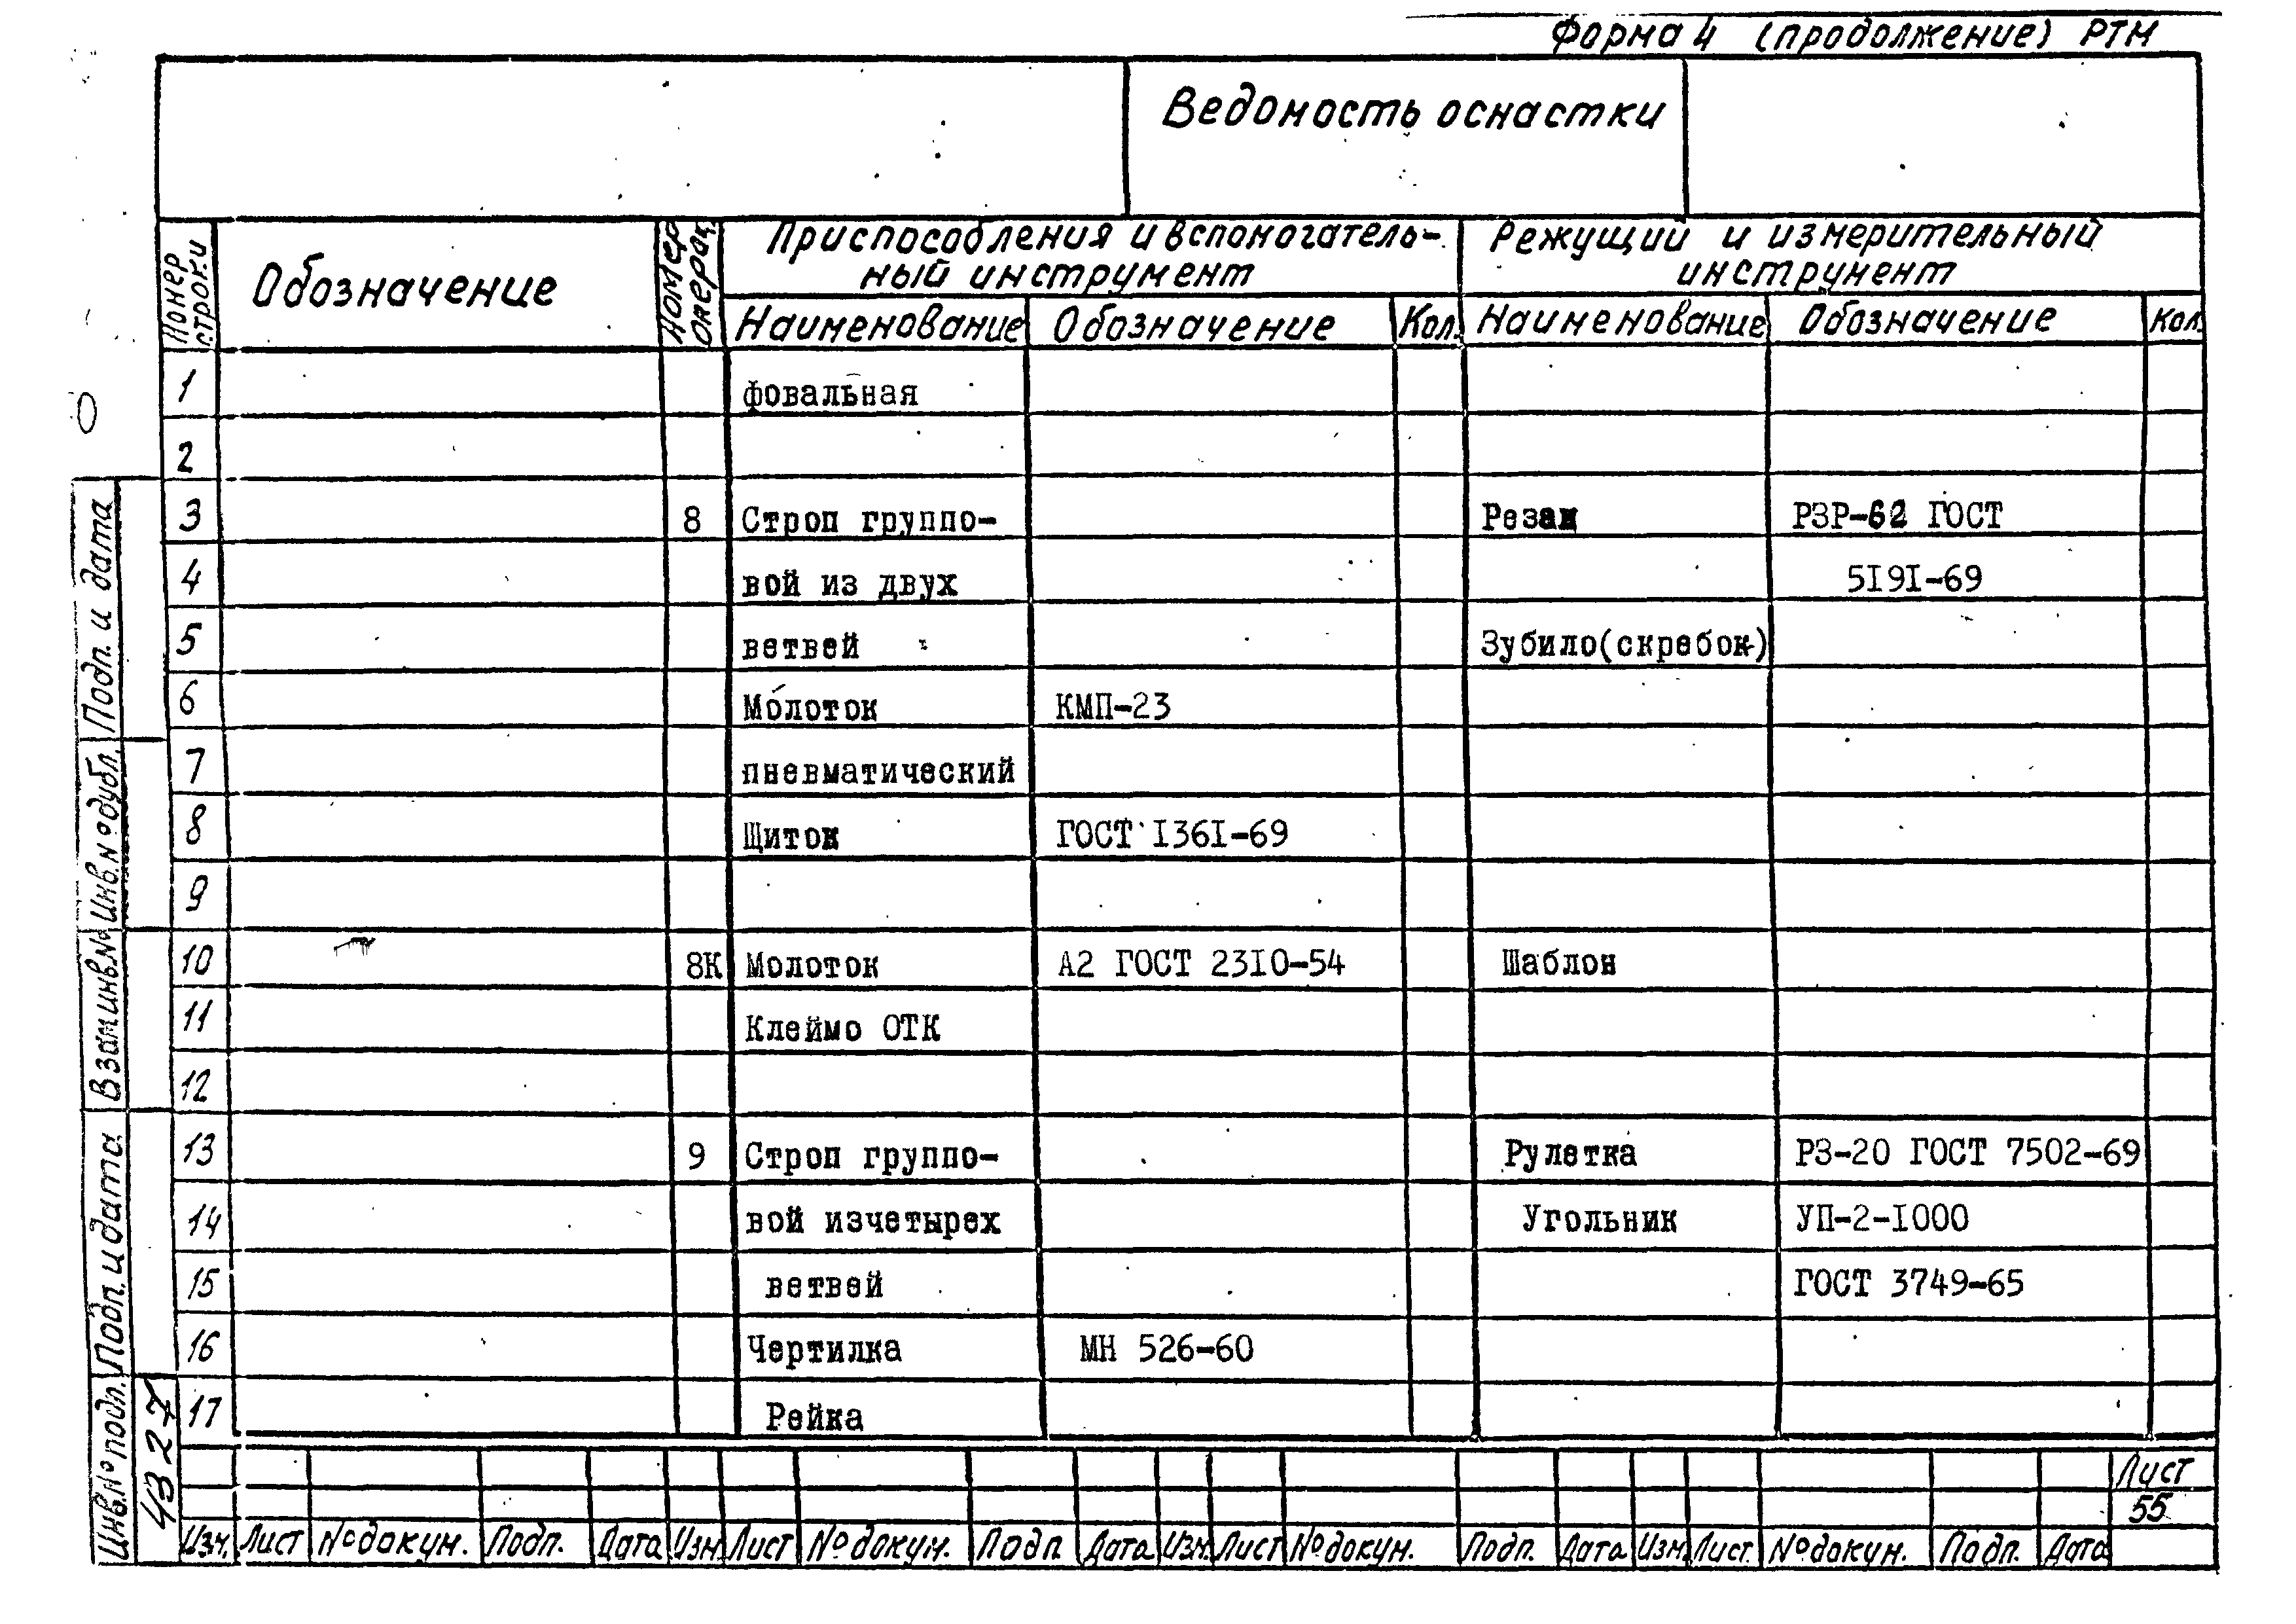 Форма 4 (продолжение) РТМ
Ведомость оснастки
Номер строки
Обозначение
Номер операц.
Приспособления и вспомогатель-
ный инструмент
Режущий и измерительный
инструмент
Наименование Обозначение Кол. Наименование Обозначение Кол.
1 фовальная
2
3 8 Строп группо- Резак РЗР-62 ГОСТ
4 вой из двух 5191-69
5 ветвей Зубило(скребок)
6 Молоток КМП-23
7 пневматический
8 Щиток ГОСТ 1361-69
9
10 8К Молоток А2 ГОСТ 2310-54 Шаблон
11 Клеймо ОТК
12
13 9 Строп группо- Рулетка РЗ-20 ГОСТ 7502-69
14 вой изчетырех Угольник УП-2-1000
15 ветвей ГОСТ 3749-65
16 Чертилка МН 526-60
17 Рейка
Подп. и дата
Инв.№дубл.
Взам.инв.№
Подп. и дата
Инв.№подл.
4327
Лист
55
Изм. Лист №докум. Подп. Дата Изм. Лист №докум. Подп Дата Изм. Лист №докум. Подп. Дата Изм. Лист. №докум. Подп. Дата